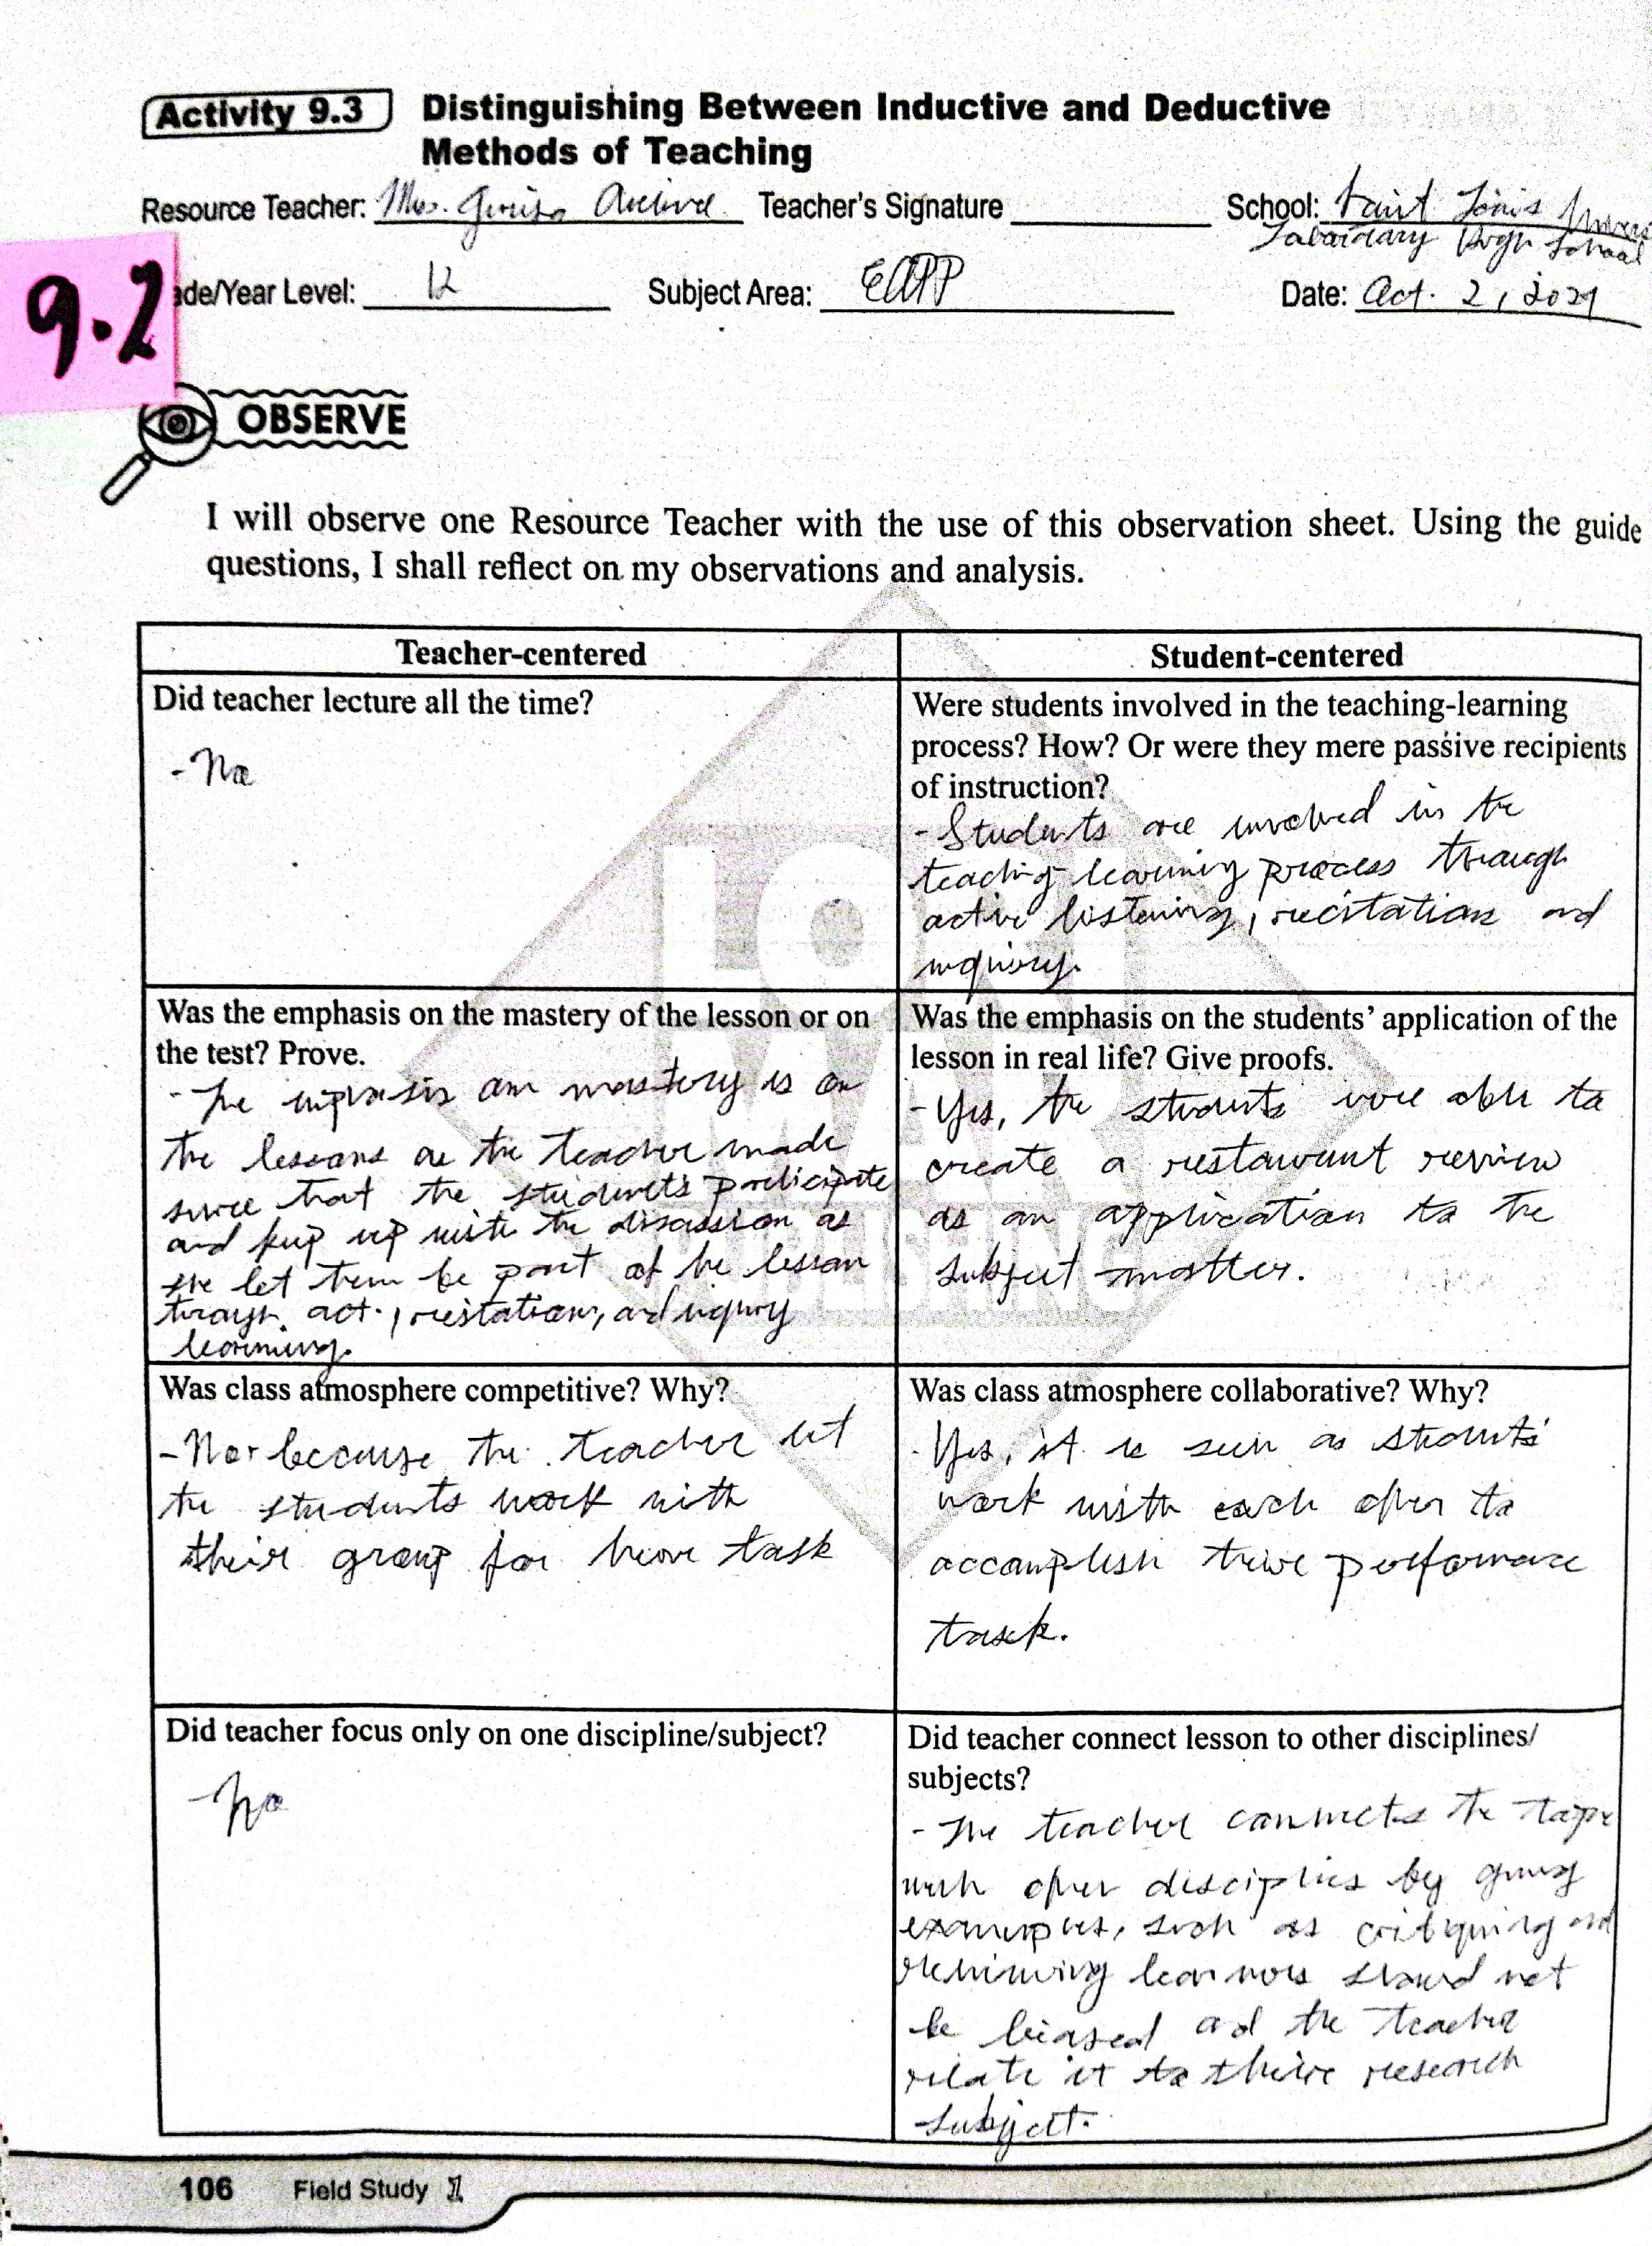 Activity 9.3 Distinguishing Between Inductive and Deductive
Methods of Teaching
Resource Teacher: Mrs. Teacher's Signature School: Saint Louis
Laboratary High School
9.2
ade/Year Level: 12 Subject Area: EAPP Date: Oct. 2, 2024
OBSERVE
I will observe one Resource Teacher with the use of this observation sheet. Using the guide
questions, I shall reflect on my observations and analysis.
Teacher-centered
Did teacher lecture all the time?
- No
Student-centered
Were students involved in the teaching-learning
process? How? Or were they mere passive recipients
of instruction?
- Students are involved in the
teaching-learning process through
active listening, recitations and
inquiry.
Was the emphasis on the mastery of the lesson or on
the test? Prove.
- The emphasis on mastery is on
the lessons as the teacher made
sure that the students participate
and keep up with the discussion as
she let them be part of the lesson
through act., recitations, and inquiry
learning.
Was the emphasis on the students' application of the
lesson in real life? Give proofs.
- Yes, the students were able to
create a restaurant review
as an application to the
subject matter.
Was class atmosphere competitive? Why?
- No, because the teacher let
the students work with
their group for task
Was class atmosphere collaborative? Why?
- Yes, it is seen as students
work with each other to
accomplish their performance
task.
Did teacher focus only on one discipline/subject?
- No
Did teacher connect lesson to other disciplines/
subjects?
- The teacher connects the topic
with other disciplines by giving
examples, such as critiquing and
reviewing learners should not
be biased and the teacher
relate it to their research
subject.
106 Field Study 1